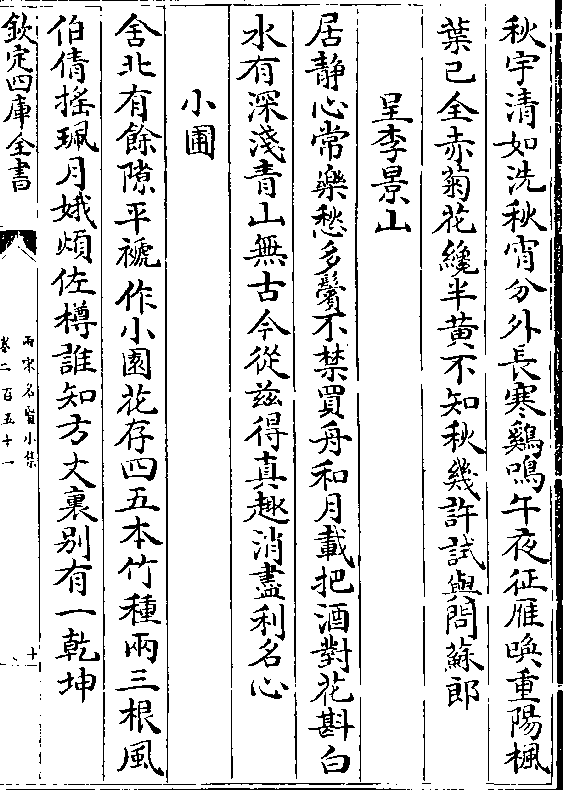 秋宇清如洗秋宵分外長寒鷄鳴午夜征雁喚重陽楓
葉已全赤菊花纔半黄不知秋幾許試與問蘇郎
呈李景山
居静心常樂愁多鬢不禁買舟和月載把酒對花斟白
水有深淺青山無古今從兹得真趣消盡利名心
小圃
舍北有餘隙平褫作小園花存四五本竹種兩三根風
伯倩摇珮月娥煩佐樽誰知方丈裏别有一乾坤
欽定四庫全書
兩宋名賢小集
卷二百五十一
十